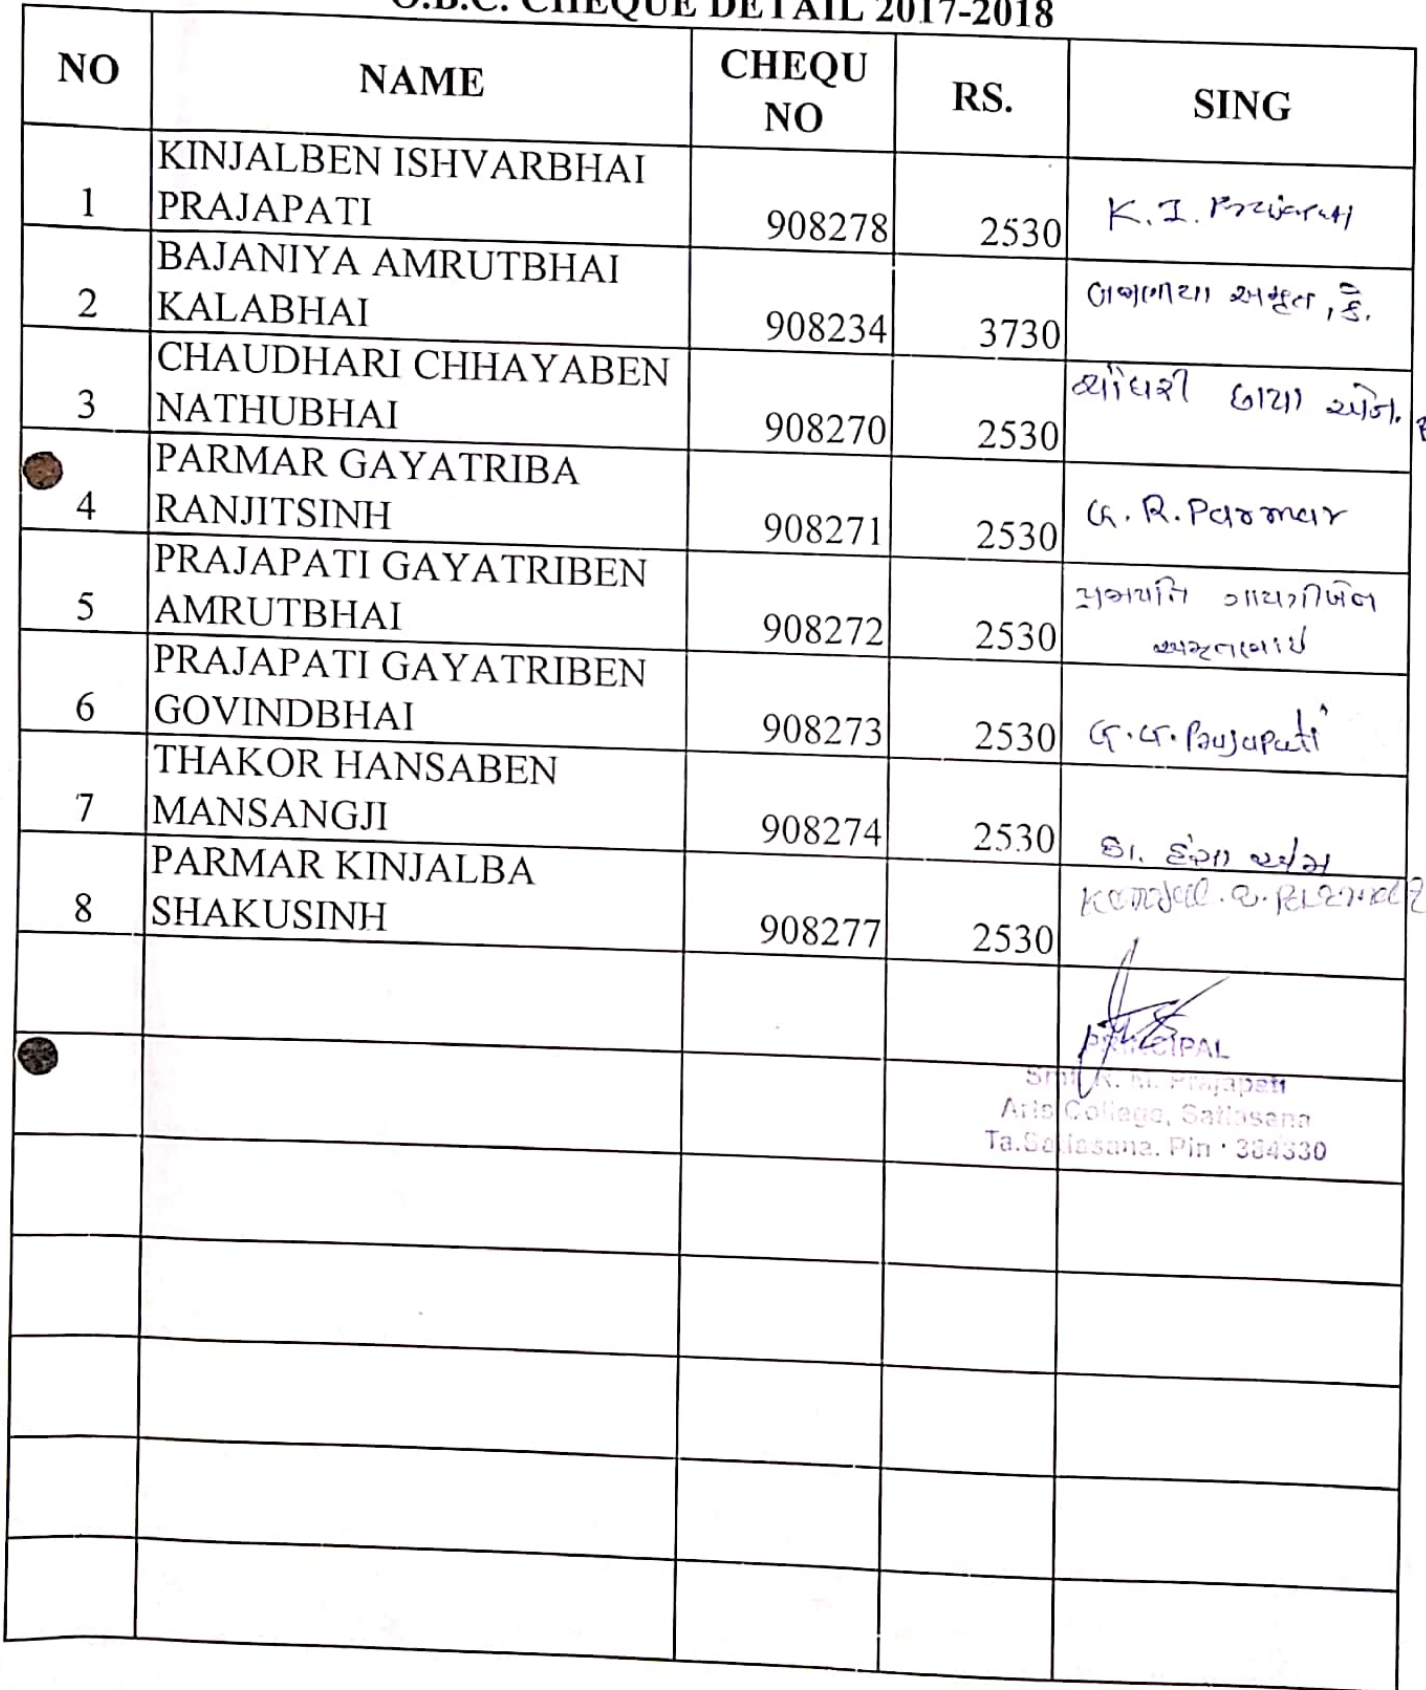 O.B.C. CHEQUE DETAIL 2017-2018
NO NAME CHEQU NO RS. SING
KINJALBEN ISHVARBHAI
1 PRAJAPATI 908278 2530 K. I. Prajapati
BAJANIYA AMRUTBHAI
2 KALABHAI 908234 3730 બજાણીયા અમૃત, કે.
CHAUDHARI CHHAYABEN
3 NATHUBHAI 908270 2530 ચૌધરી છાયા એન.
PARMAR GAYATRIBA
4 RANJITSINH 908271 2530 G. R. Parmar
PRAJAPATI GAYATRIBEN
5 AMRUTBHAI 908272 2530 પ્રજાપતિ ગાયત્રીબેન
અમૃતભાઈ
PRAJAPATI GAYATRIBEN
6 GOVINDBHAI 908273 2530 G. G. Prajapati
THAKOR HANSABEN
7 MANSANGJI 908274 2530 ઠા. હંસા એમ
PARMAR KINJALBA
8 SHAKUSINH 908277 2530 Kinjal. S. Parmar
PRINCIPAL
Smt. R. M. Prajapati
Arts College, Satlasana
Ta.Satlasana. Pin · 384330